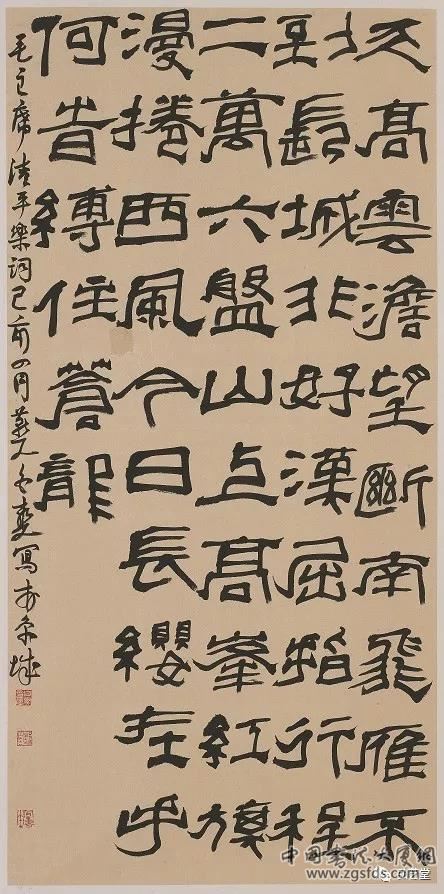 天高雲澹望斷南飛雁不
到長城非好漢屈指行程
二萬六盤山上高峯紅旗
漫捲西風今日長纓在手
何旹縛住蒼龍
毛主席清平樂詞己 四月燕人 寫於京城
中国书法大厦網
www.zgsfds.com